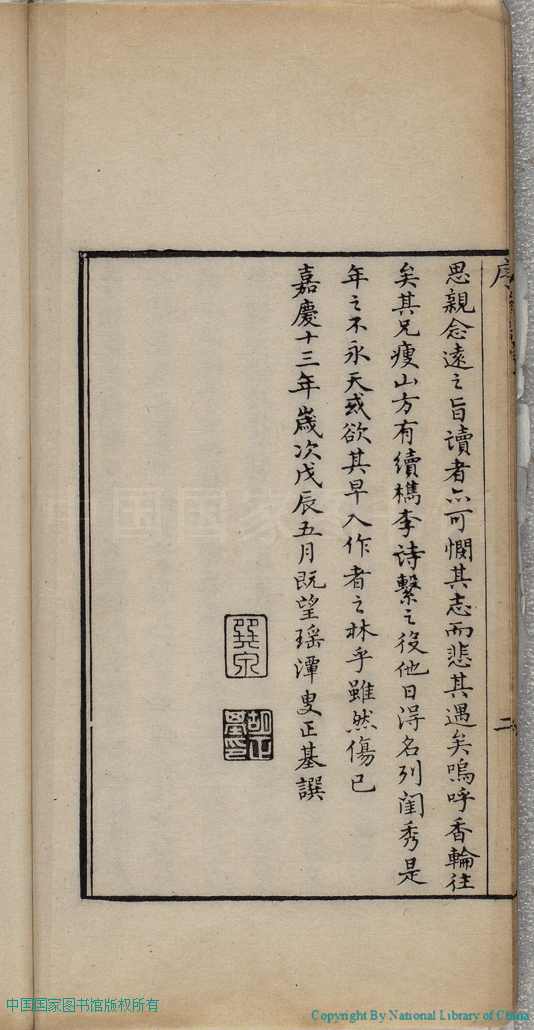 序
二
思親念遠之旨讀者亦可憫其志而悲其遇矣嗚呼香輪往
矣其兄瘦山方有續檇李詩繫之役他日得名列閨秀是
年之不永天或欲其早入作者之林乎雖然傷已
嘉慶十三年歲次戊辰五月既望瑶潭叟正基譔
巽泉
胡正基印
中国国家图书馆版权所有
Copyright By National Library of China